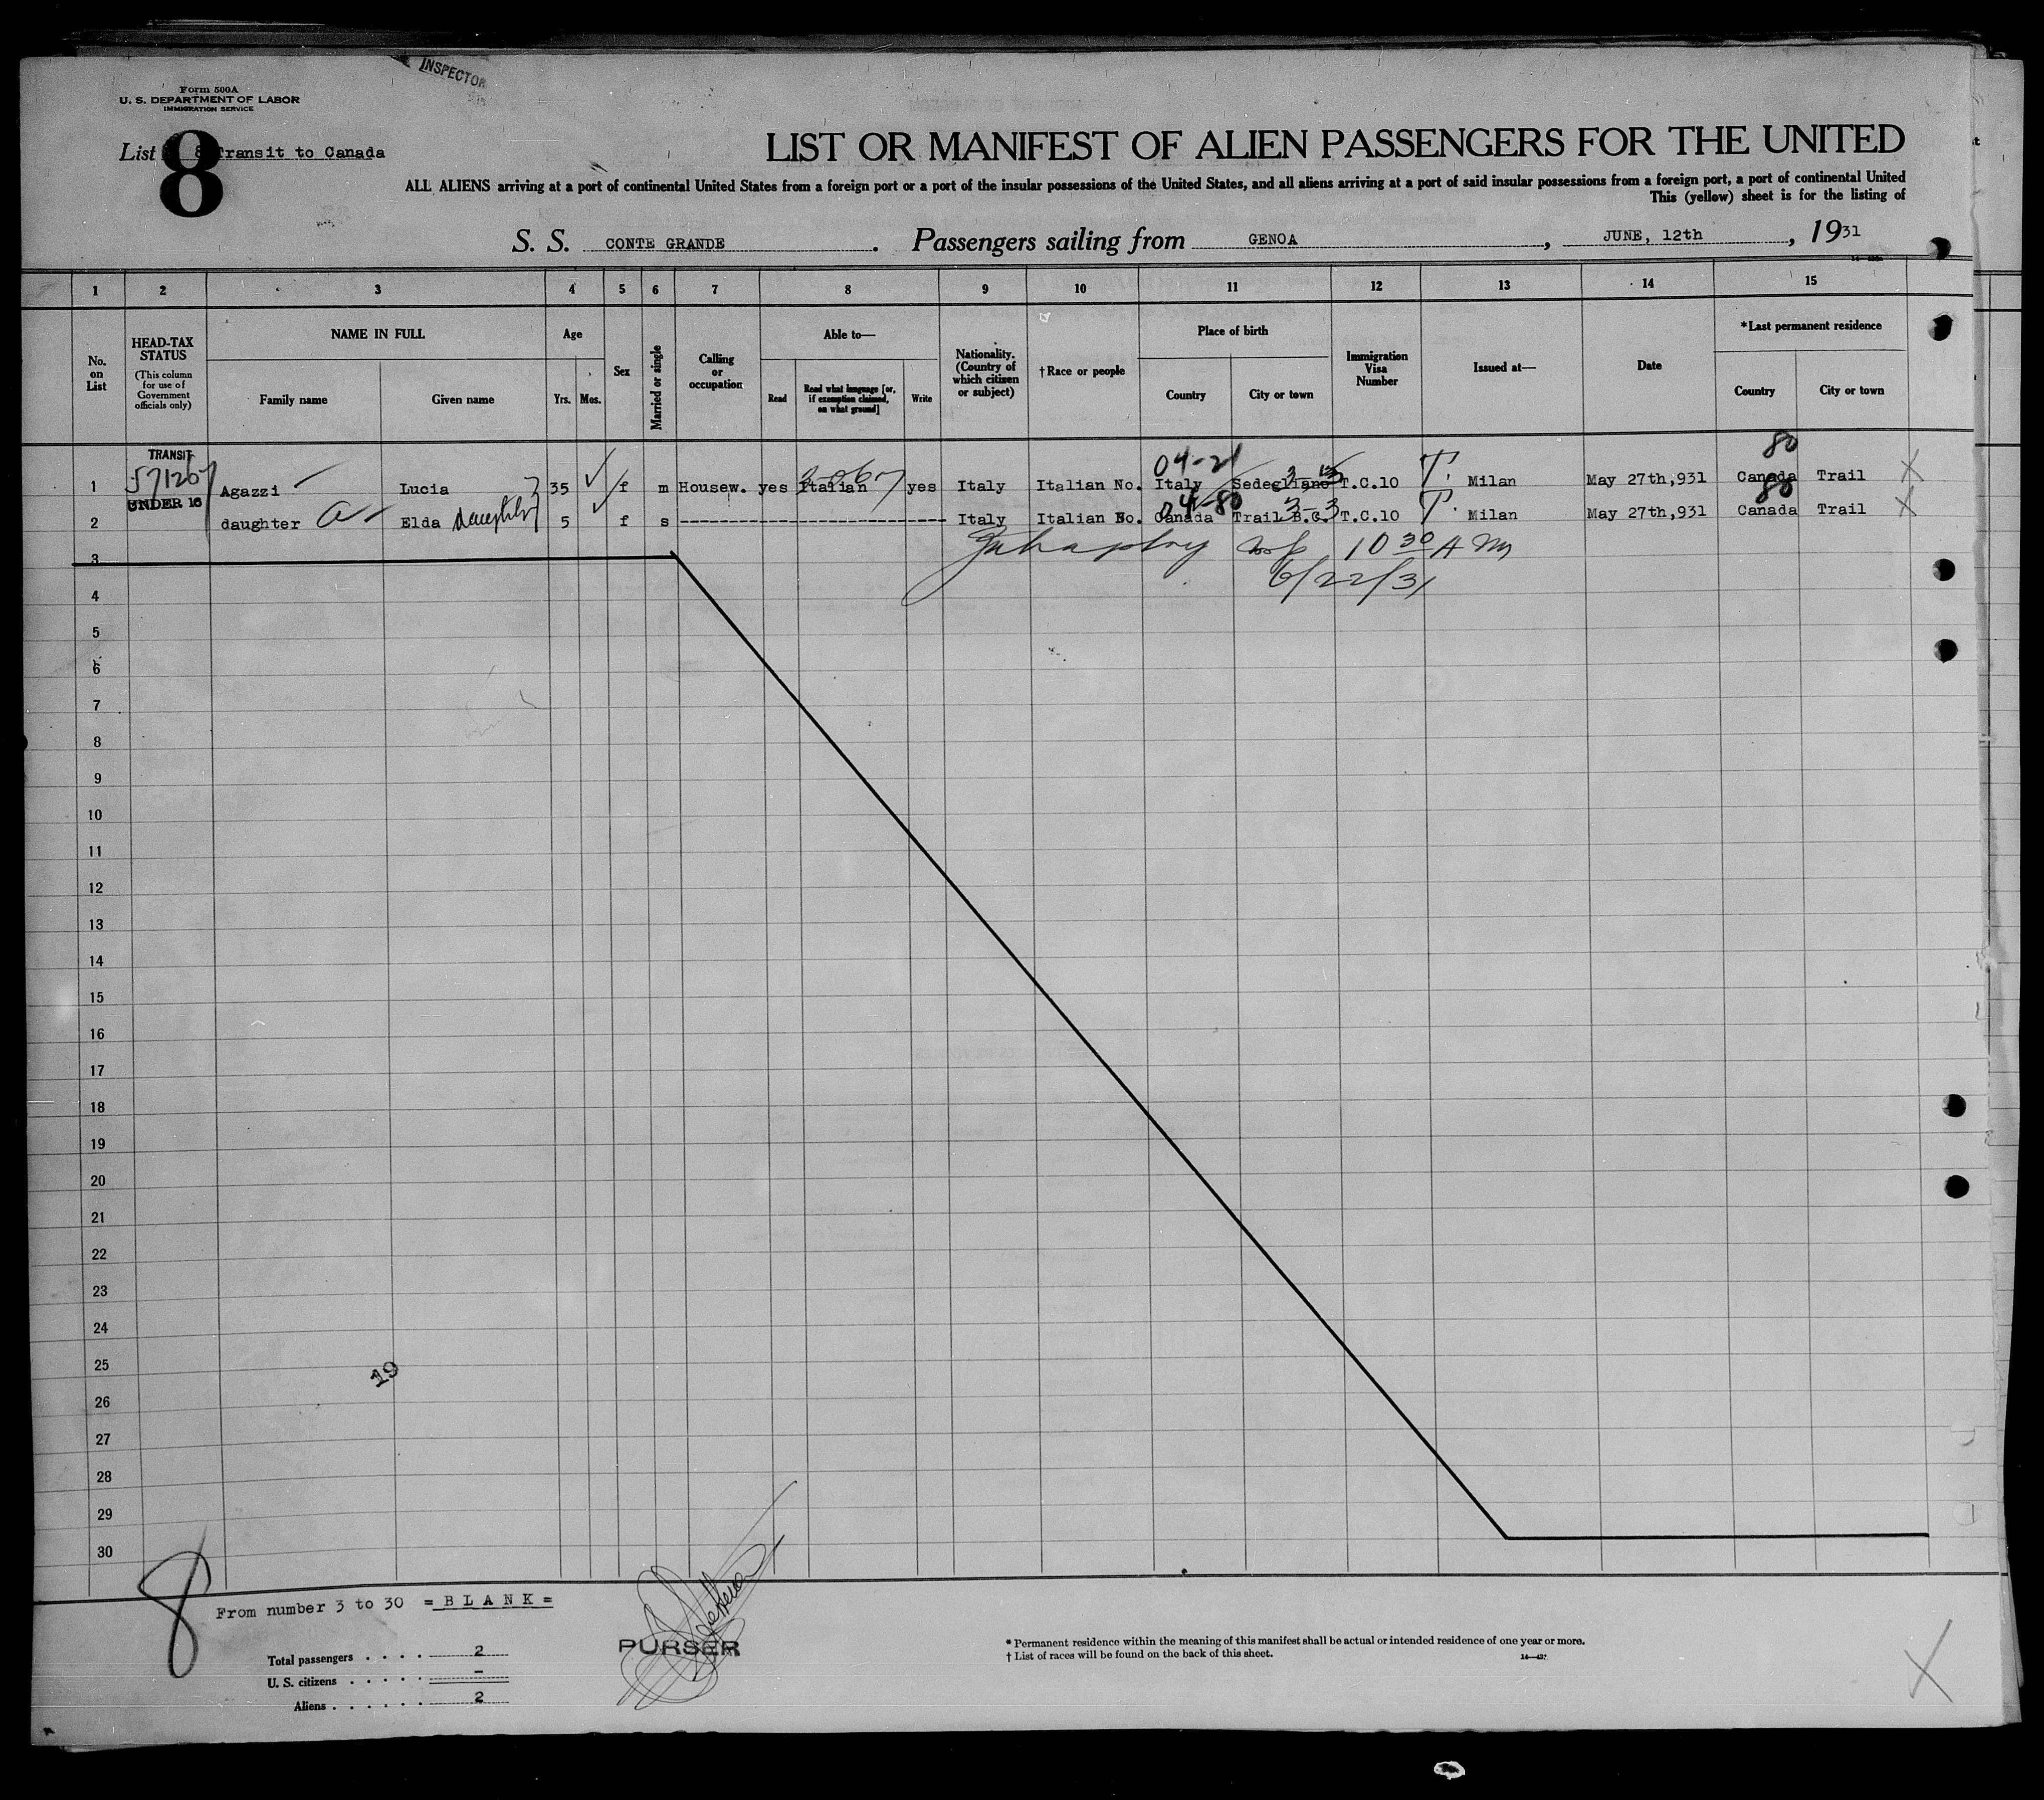 INSPECTOR
Form 500A
U. S. DEPARTMENT OF LABOR
IMMIGRATION SERVICE
List 8 Transit to Canada
8
LIST OR MANIFEST OF ALIEN PASSENGERS FOR THE UNITED
ALL ALIENS arriving at a port of continental United States from a foreign port or a port of the insular possessions of the United States, and all aliens arriving at a port of said insular possessions from a foreign port, a port of continental United
This (yellow) sheet is for the listing of
S. S. CONTE GRANDE. Passengers sailing from GENOA, JUNE, 12th, 1931
1 2 3 4 5 6 7 8 9 10 11 12 13 14 15
No. on List
HEAD-TAX STATUS
(This column for use of Government officials only)
NAME IN FULL
Family name
Given name
Age
Yrs.
Mos.
Sex
Married or single
Calling or occupation
Able to—
Read
Read what language [or, if exemption claimed, on what ground]
Write
Nationality. (Country of which citizen or subject)
†Race or people
Place of birth
Country
City or town
Immigration Visa Number
Issued at—
Date
*Last permanent residence
Country
City or town
TRANSIT
04-21 80
1 Agazzi Lucia 35 f m Housew. yes Italian yes Italy Italian No. Italy Sedegliano T.C.10 T. Milan May 27th,931 Canada Trail X
UNDER 16
04-80 3-3 80
2 daughter Elda daughter 5 f s Italy Italian No. Canada Trail B.C. T.C.10 T. Milan May 27th,931 Canada Trail X
10 30 AM
6/22/31
3
4
5
6
7
8
9
10
11
12
13
14
15
16
17
18
19
20
21
22
23
24
25
19
26
27
28
29
30
8
From number 3 to 30 =BLANK=
PURSER
Total passengers . . . . 2
U. S. citizens . . . . . –
Aliens . . . . . . 2
* Permanent residence within the meaning of this manifest shall be actual or intended residence of one year or more.
† List of races will be found on the back of this sheet.
X